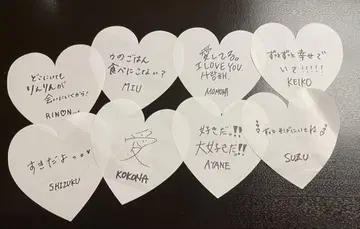 どこにいても
りんりんが
会いにいくから!
RINON...
うのごはん
食べにこてよい?
MIU
愛してる。
I LOVE YOU.
사랑해.
MOMONA
ずっとずっと幸せで
いて!!!!!
KEIKO
すきだよ
SHIZUKU
KOKONA
好きだ!!
大好きだ!!
AYANE
ずっとそばにいてね
SUZU